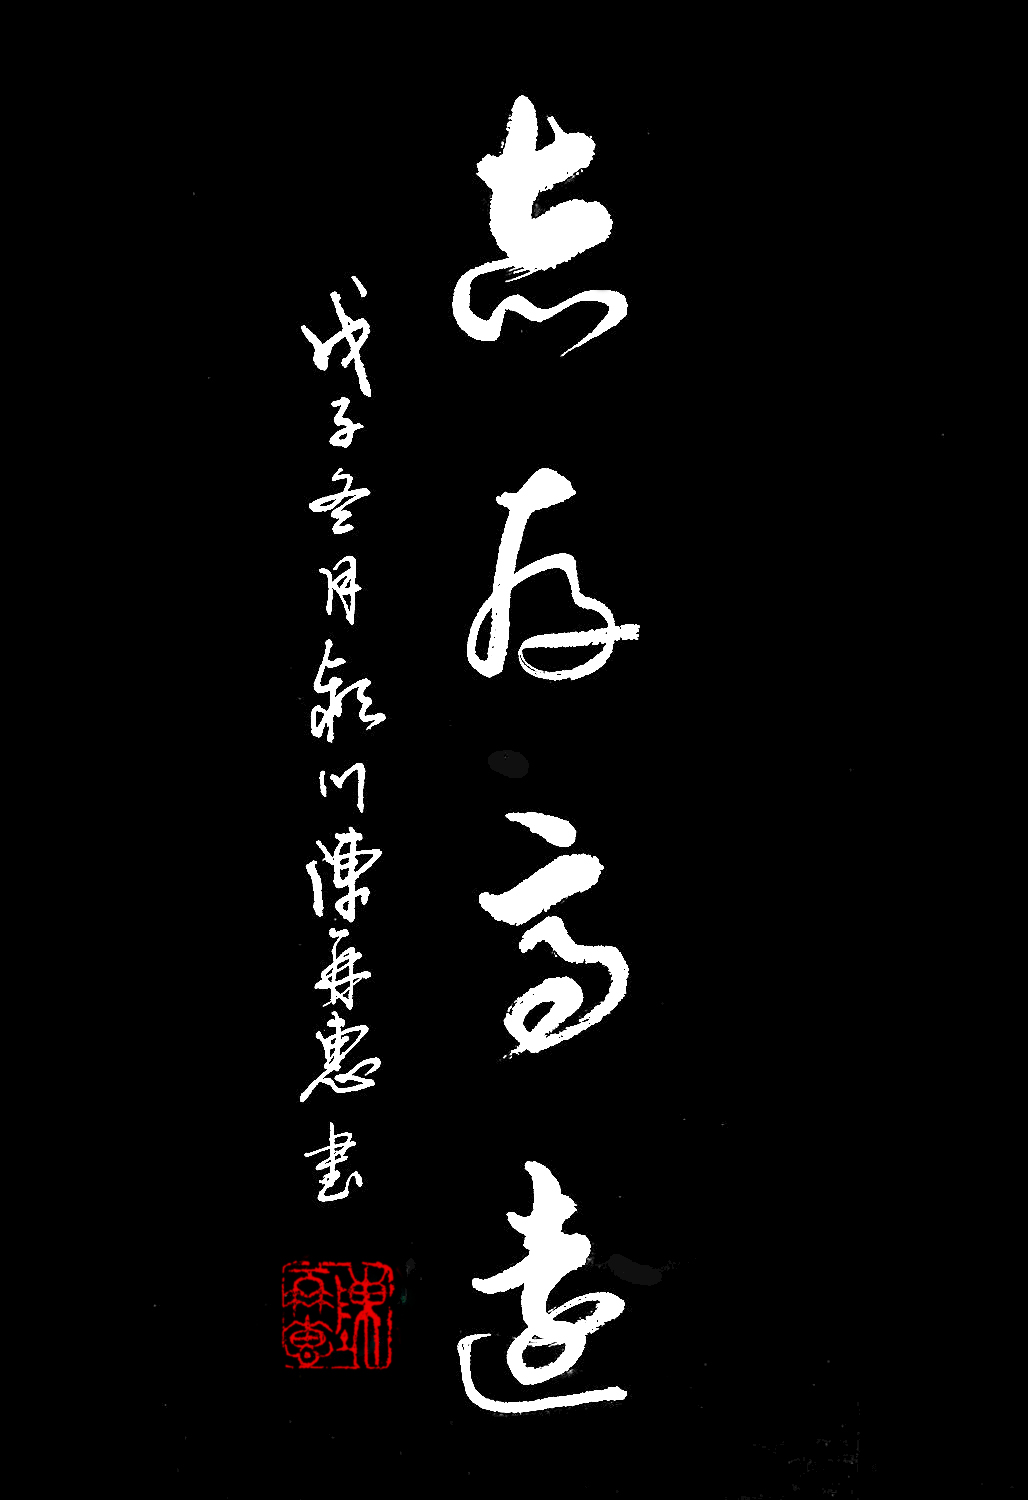 志存高遠
戊子冬月潁川陳再惠書
陳再惠